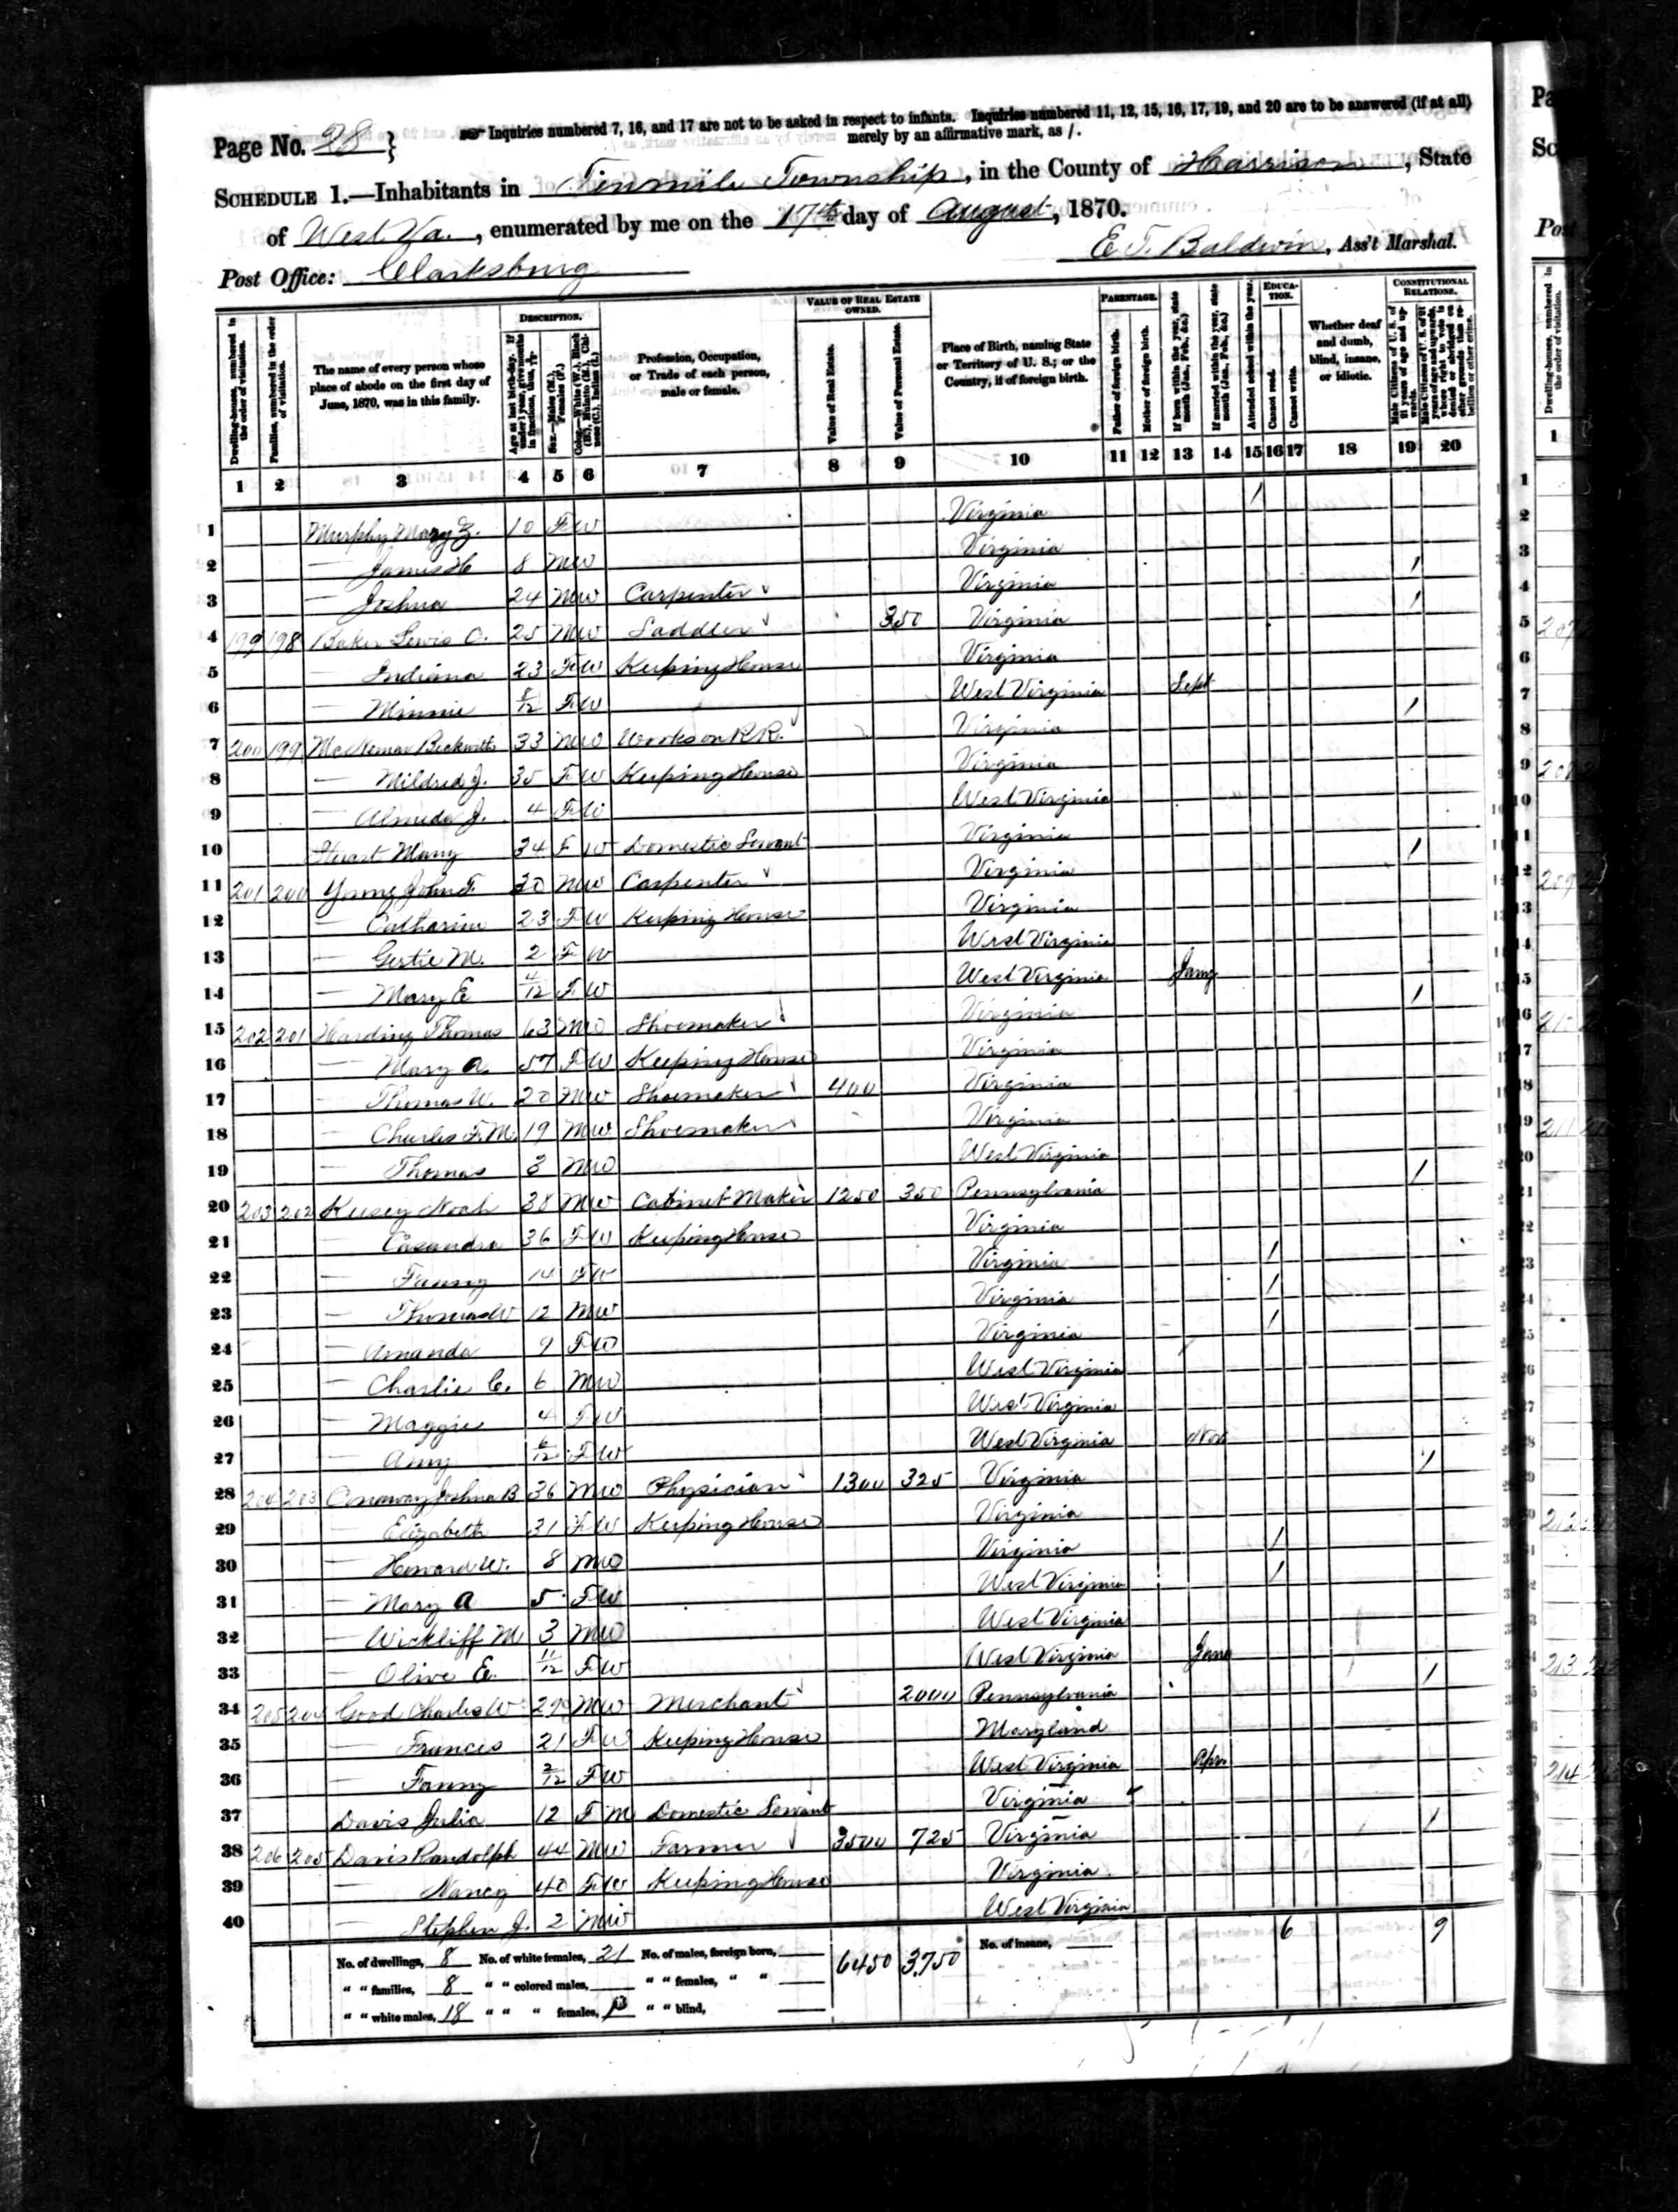 Page No. 28 }
Inquiries numbered 7, 16, and 17 are not to be asked in respect to infants. Inquiries numbered 11, 12, 15, 16, 17, 19, and 20 are to be answered (if at all)
merely by an affirmative mark, as /.
SCHEDULE 1.—Inhabitants in Tenmile Township, in the County of Harrison, State
of West Va., enumerated by me on the 17th day of August, 1870.
Post Office: Clarksburg
E. T. Baldwin, Ass't Marshal.
Dwelling-houses, numbered in the order of visitation.
Families, numbered in the order of visitation.
The name of every person whose place of abode on the first day of June, 1870, was in this family.
DESCRIPTION.
Age at last birth-day. If under 1 year, give months in fractions, thus, 3/12
Sex.—Males (M.), Females (F.)
Color.—White (W.), Black (B.), Mulatto (M.), Chinese (C.), Indian (I.)
Profession, Occupation, or Trade of each person, male or female.
VALUE OF REAL ESTATE OWNED.
Value of Real Estate.
Value of Personal Estate.
Place of Birth, naming State or Territory of U. S.; or the Country, if of foreign birth.
PARENTAGE.
Father of foreign birth.
Mother of foreign birth.
If born within the year, state month (Jan., Feb., &c.)
If married within the year, state month (Jan., Feb., &c.)
Attended school within the year.
EDUCATION.
Cannot read.
Cannot write.
Whether deaf and dumb, blind, insane, or idiotic.
CONSTITUTIONAL RELATIONS.
Male Citizens of U. S. of 21 years of age and upwards.
Male Citizens of U. S. of 21 years of age and upwards, whose right to vote is denied or abridged on other grounds than rebellion or other crime.
1 2 3 4 5 6 7 8 9 10 11 12 13 14 15 16 17 18 19 20
1 Murphy Mary 10 F W Virginia /
2 — James H 8 M W Virginia
3 — Joshua 24 M W Carpenter Virginia /
4 199 198 Baker Lewis C. 25 M W Saddler 350 Virginia /
5 — Indiana 23 F W Keeping House Virginia
6 — Minnie 8/12 F W West Virginia Sept
7 200 199 Beckwith 33 M W Works on R.R. Virginia /
8 — Mildred J. 35 F W Keeping House Virginia
9 — Almeda J. 4 F W West Virginia
10 Stuart Mary 34 F W Domestic Servant Virginia
11 201 200 Young John F. 30 M W Carpenter Virginia /
12 — Catharine 23 F W Keeping House Virginia
13 — Gertie M. 2 F W West Virginia
14 — Mary E 4/12 F W West Virginia Jany
15 202 201 Harding Thomas 63 M W Shoemaker Virginia /
16 — Mary A. 57 F W Keeping House Virginia
17 — Thomas W. 20 M W Shoemaker 400 Virginia
18 — Charles F. M. 19 M W Shoemaker Virginia
19 — Thomas 3 M W West Virginia
20 203 202 Kersey Noah 38 M W Cabinet Maker 1250 350 Pennsylvania /
21 — Casandra 36 F W Keeping House Virginia
22 — Fanny 14 F W Virginia /
23 — Thomas W 12 M W Virginia /
24 — Amanda 9 F W Virginia /
25 — Charlie C. 6 M W West Virginia
26 — Maggie 4 F W West Virginia
27 — Amy 6/12 F W West Virginia Nov
28 204 203 Conoway Joshua B 36 M W Physician 1300 325 Virginia /
29 — Elizabeth 31 F W Keeping House Virginia
30 — Howard W. 8 M W Virginia /
31 — Mary A 5 F W West Virginia /
32 — Wickliff M 3 M W West Virginia
33 — Olive E. 11/12 F W West Virginia June
34 205 204 Good Charles W 29 M W Merchant 2000 Pennsylvania /
35 — Frances 21 F W Keeping House Maryland
36 — Fanny 2/12 F W West Virginia Apr.
37 Davis Julia 12 F M Domestic Servant Virginia
38 206 205 Davis Randolph 44 M W Farmer 3500 725 Virginia /
39 — Nancy 40 F W Keeping House Virginia
40 — Stephen J. 2 M W West Virginia
No. of dwellings, 8 No. of white females, 21 No. of males, foreign born, 6450 3750 No. of insane, 6 9
" " families, 8 " " colored males, " " females, " "
" " white males, 18 " " " females, " " blind,